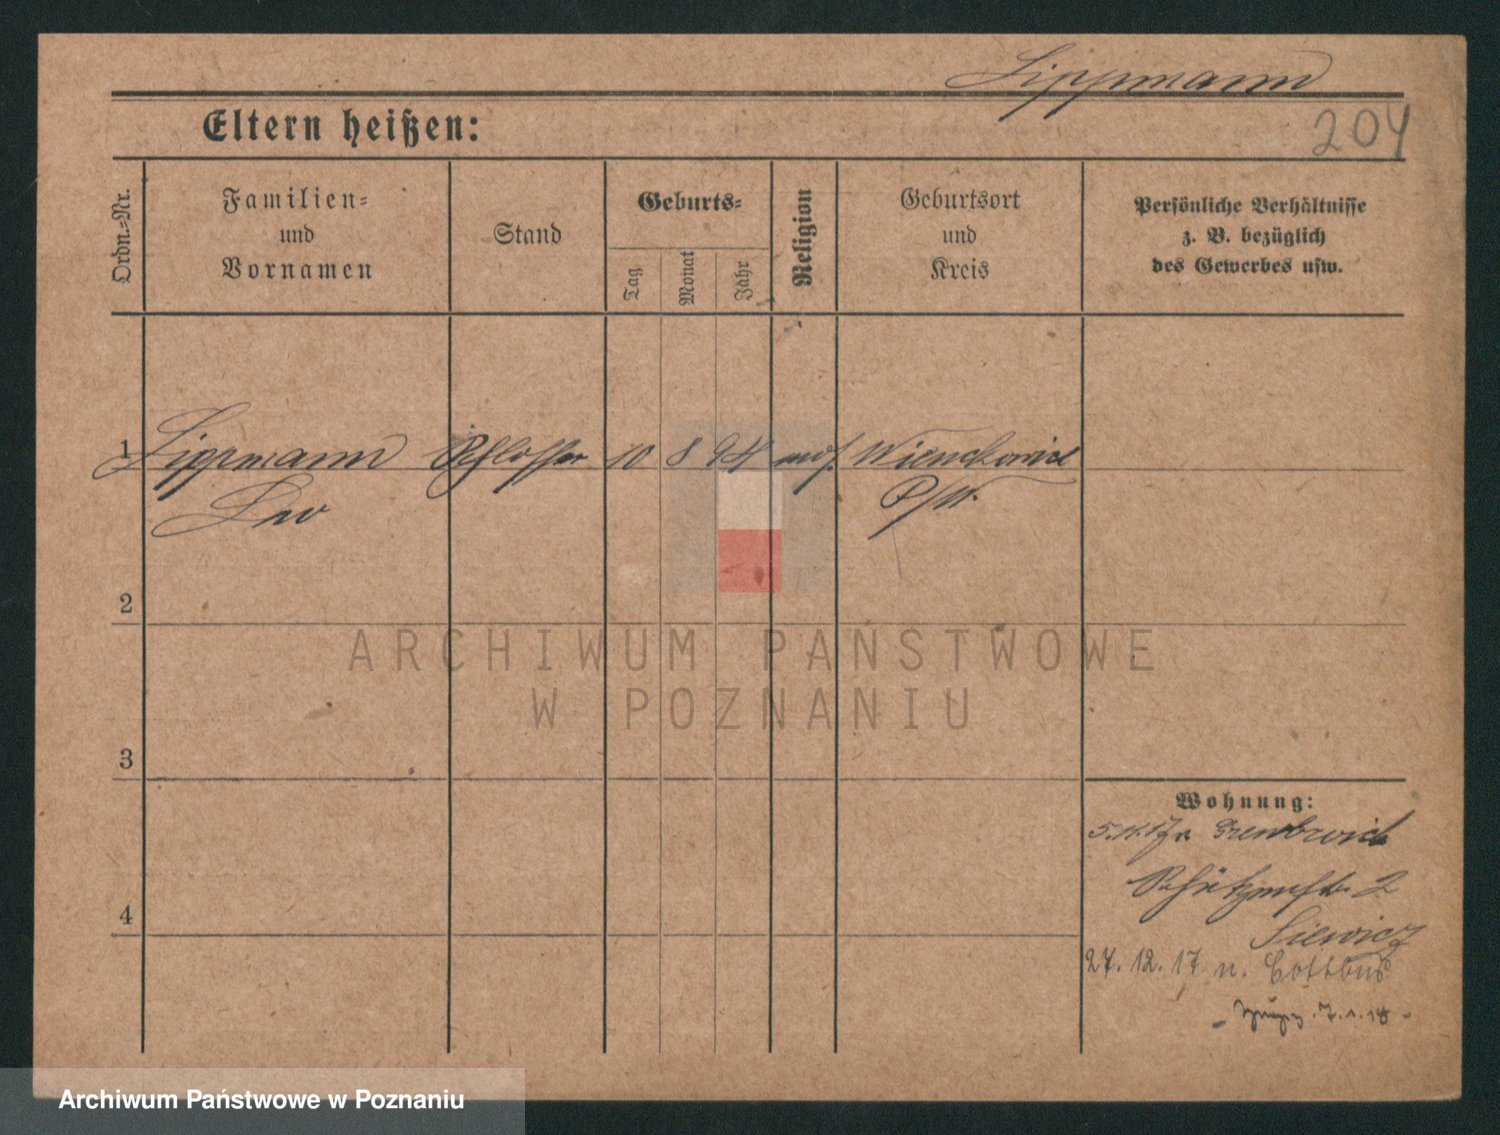 Lippmann
204
Eltern heißen:
Ordn.-Nr.
Familien=
und
Vornamen
Stand
Geburts=
Tag
Monat
Jahr
Religion
Geburtsort
und
Kreis
Persönliche Verhältnisse
z. B. bezüglich
des Gewerbes usw.
1 Lippmann Schlosser 10 8 94 mos.
Leo
2
3
4
Wohnung:
5.11.17
2
27. 12. 17 n. Cottbus
7.1.18
ARCHIWUM PAŃSTWOWE
W POZNANIU
Archiwum Państwowe w Poznaniu